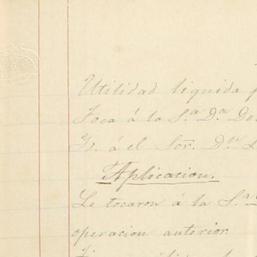 Utilidad liquida p
Toca á la S.ª D.ª Do
Id. á el Sor. D.n
Aplicacion.
Le tocaron á la S.ª
operacion anterior